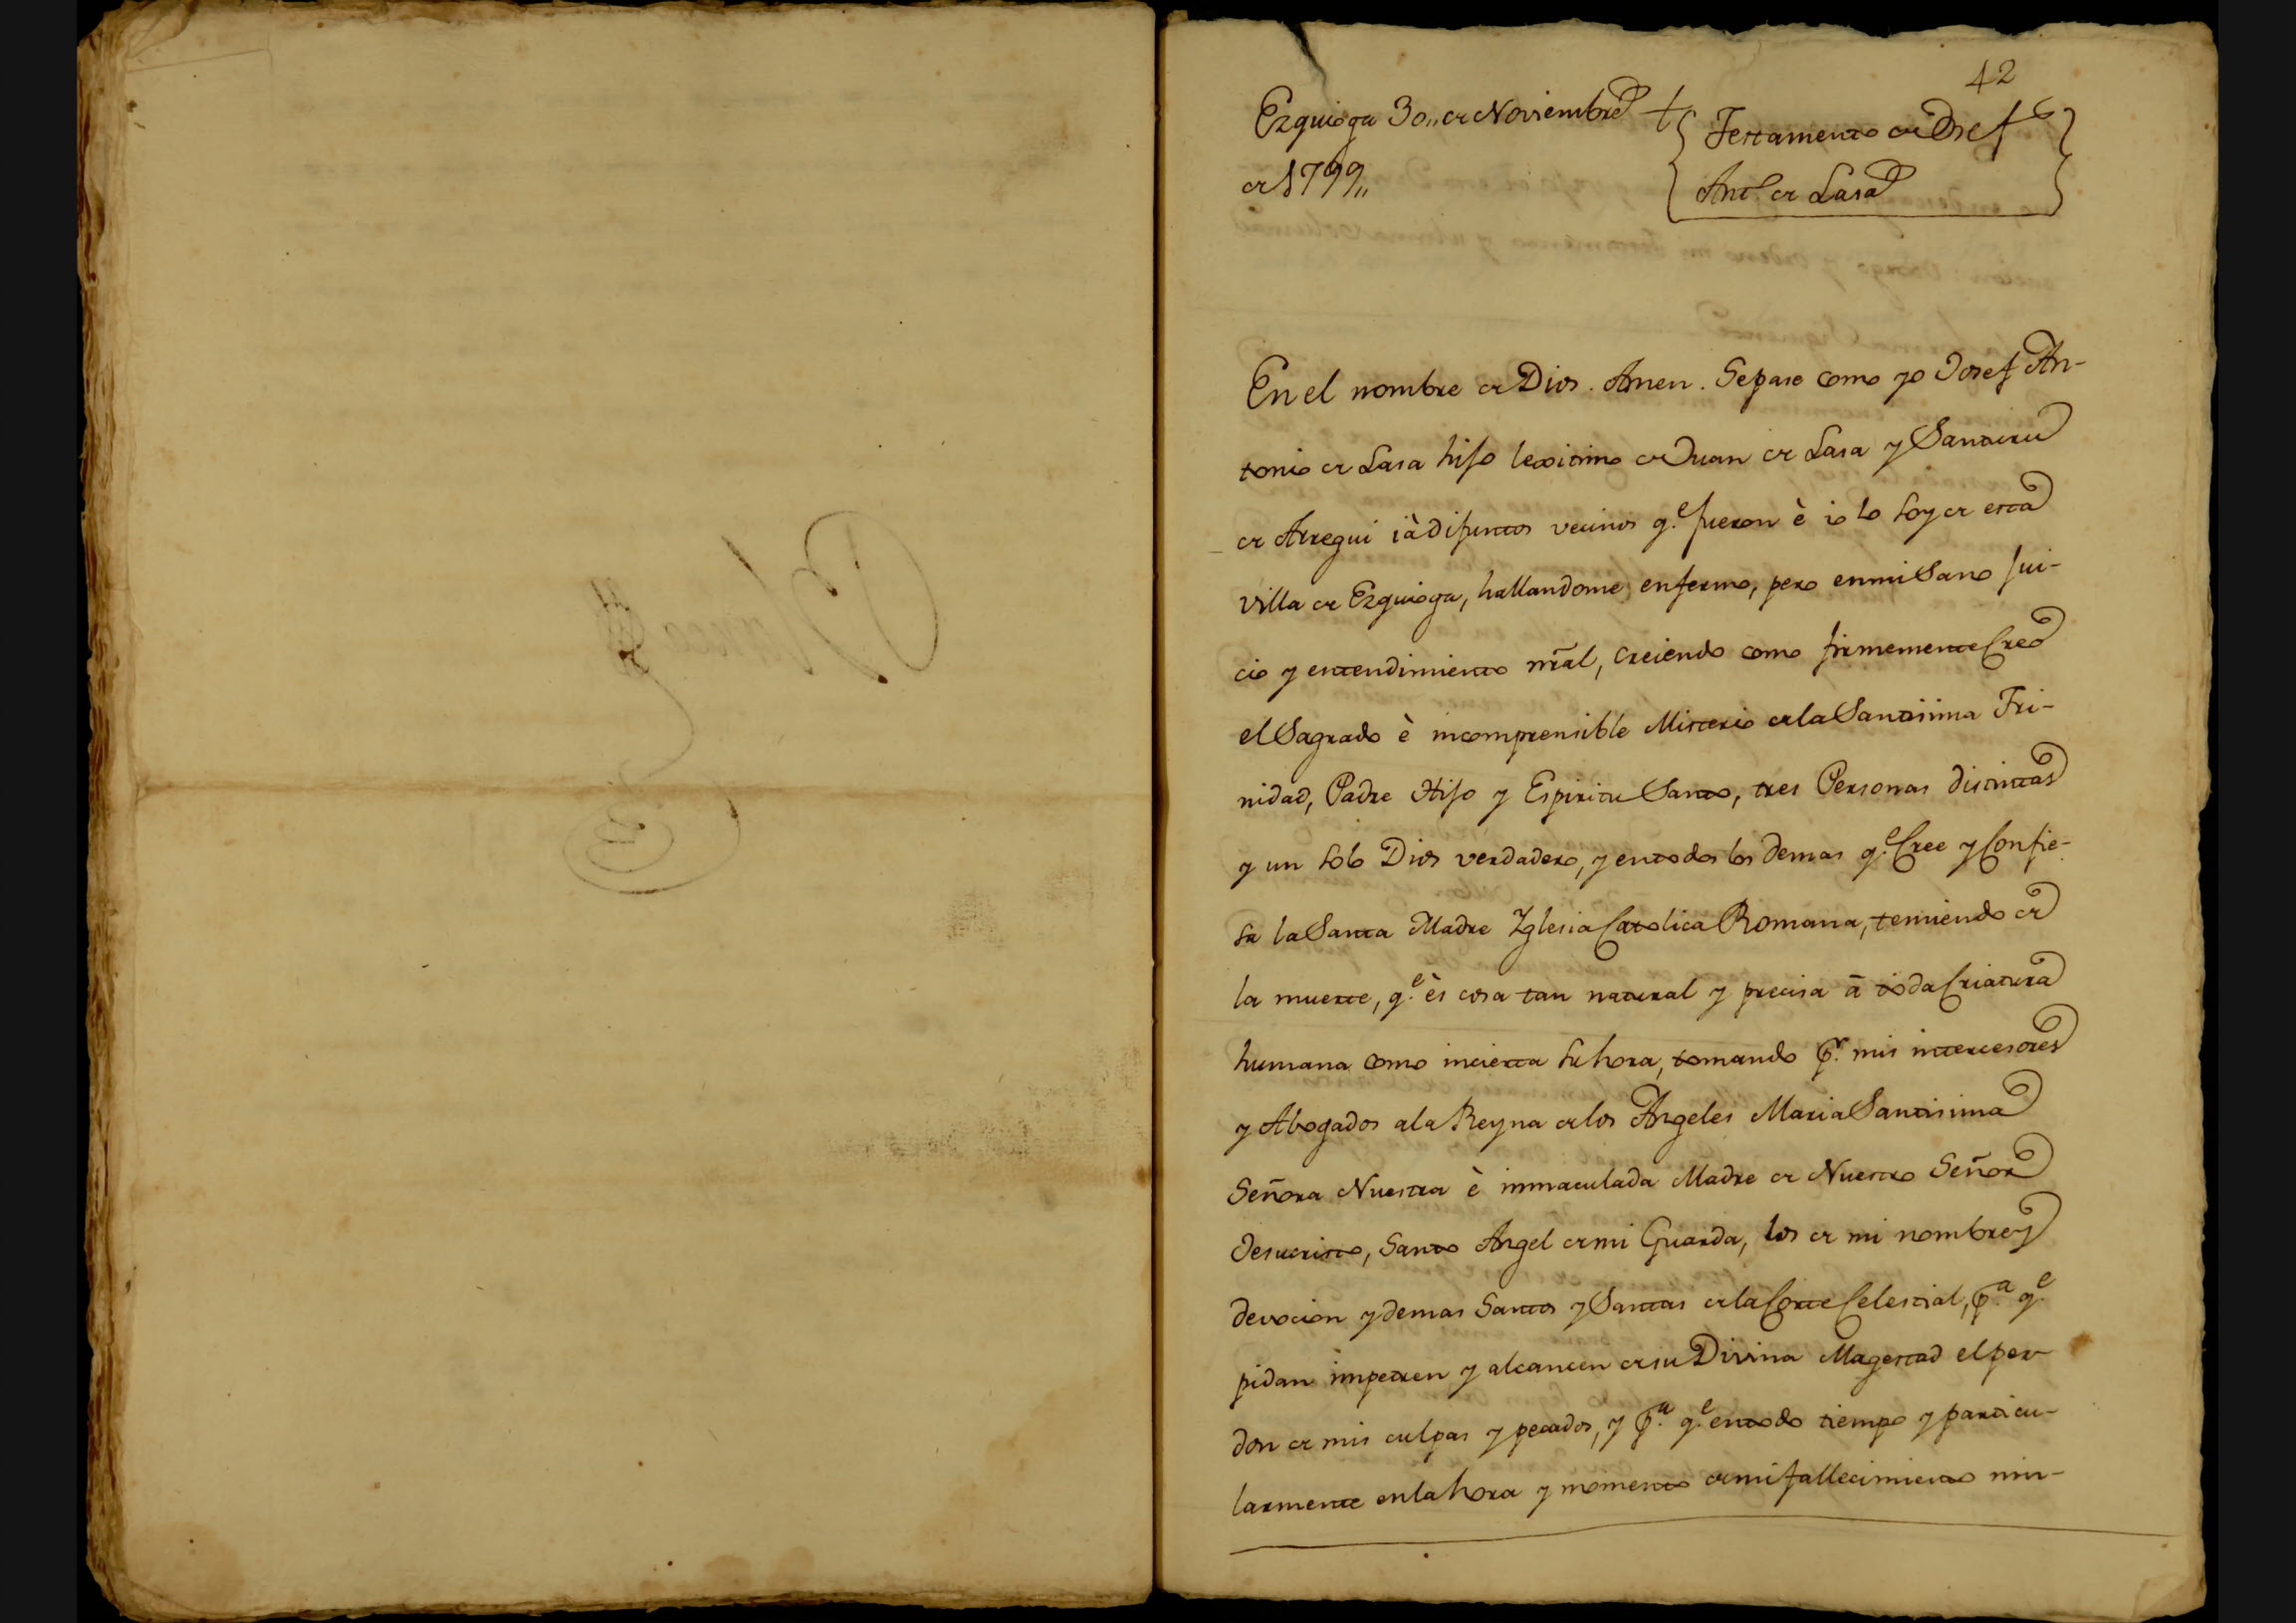 42
Ezquioga 30,, de Noviembre
de 1799,,
Testamento de Josef
Ant.º de Lasa
En el nombre de Dios. Amen. Sepase como yo Josef An-
tonio de Lasa hijo lexitimo de Juan de Lasa y Santuru
de Arregui ià difuntos vecinos q.e fueron è io lo soy de esta
Villa de Ezquioga, hallandome enfermo, pero en mi Sano jui-
cio y entendimiento nr̃al, creiendo como firmemente Creo
el Sagrado è incomprensible Misterio de la Santisima Tri-
nidad, Padre Hijo y Espiritu Santo, tres Personas distintas
y un solo Dios verdadero, y en todos los demas q.e Cree y Confie-
sa la Santa Madre Yglesia Catolica Romana, temiendo de
la muerte, q.e ès cosa tan natural y precisa ā toda Criatura
humana como incierta su hora, tomando p.r mis intercesores
y Abogados a la Reyna de los Angeles Maria Santisima
Señora Nuestra è inmaculada Madre de Nuestro Señor
Jesucristo, Santo Angel de mi Guarda, los de mi nombre y
devocion y demas Santos y Santas de la Corte Celestial, p.a q.e
pidan impetren y alcancen de su Divina Magestad el per-
don de mis culpas y pecados, y p.a q.e en todo tiempo y particu-
larmente en la hora y momento de mi fallecimiento min-